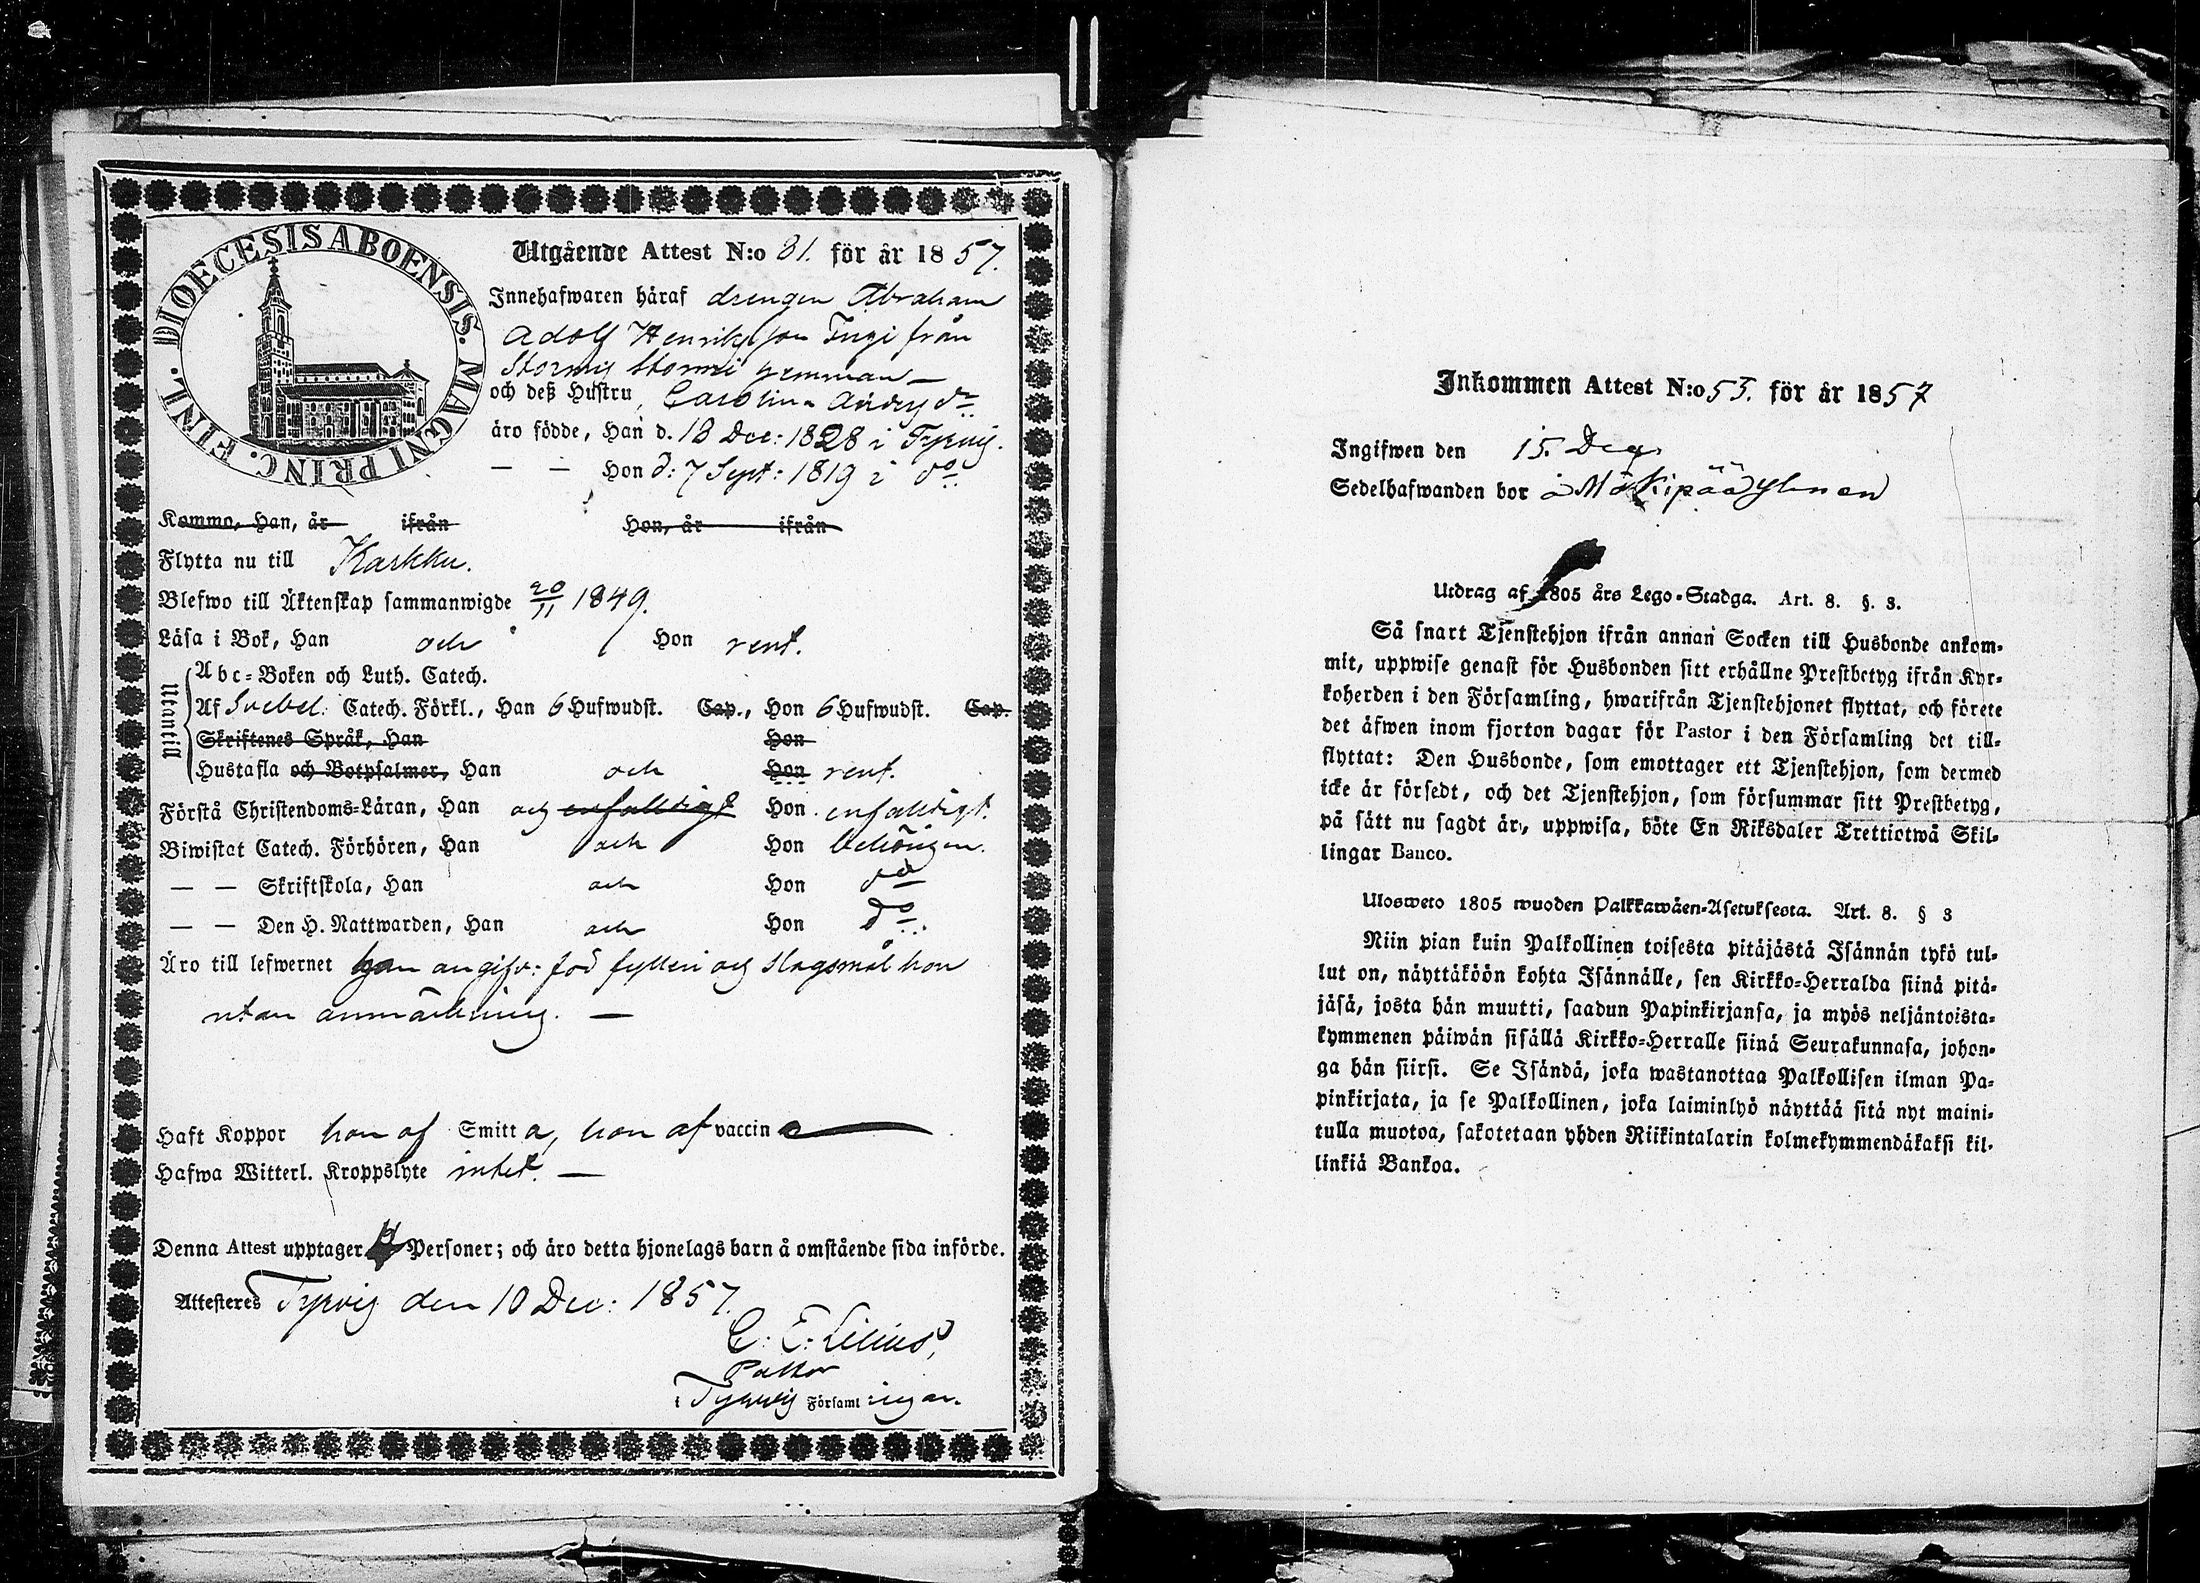 DIOECESIS ABOENSIS. MAGNI PRINC. FINL.
Utgående Attest N:o 31. för år 1857.
Innehafwaren häraf drengen Abraham
Adolf Henriksson Tugi från
Stormi hemman
och deß Hustru, Carolina Anders dr.
äro födde, Han d. 18 Dec: 1828 i Tyrvis.
— — Hon d: 7 Sept: 1819 i do.
Kommo, Han, år ifrån Hon, år ifrån
Flytta nu till Karkku.
Blefwo till Äktenskap sammanwigde 20/11 1849.
Läsa i Bok, Han och Hon rent.
Utantill
Abc-Boken och Luth. Catech.
Af Svebel. Catech. Förkl., Han 6 Hufwudst. Cap., Hon 6 Hufwudst. Cap.
Skriftenes Språk, Han Hon
Hustafla och Botpsalmer, Han och Hon rent.
Förstå Christendoms-Läran, Han och enfalldigt Hon enfalldigt.
Biwistat Catech. Förhören, Han och Hon behörigen.
— — Skriftskola, Han och Hon do
— — Den H. Nattwarden, Han och Hon do.
Äro till lefwernet han angifv: för fylleri och slagsmål hon
utan anmärkning. —
Haft Koppor han af Smitta, hon af vaccin
Hafwa Witterl. Kroppslyte intet. —
Denna Attest upptager Personer; och äro detta hjonelags barn å omstående sida införde.
Attesteres Tyrvis den 10 Dec: 1857.
C. E. Lilius,
Pastor
i Tyrvis Församlingar.
Inkommen Attest N:o 53. för år 1857
Ingifwen den 15. Dec.
Sedelhafwanden bor å Mäkipää Ylinen
Utdrag af 1805 års Lego-Stadga. Art. 8. §. 3.
Så snart Tjenstehjon ifrån annan Socken till Husbonde ankom-
mit, uppwise genast för Husbonden sitt erhållne Prestbetyg ifrån Kyr-
koherden i den Församling, hwarifrån Tjenstehjonet flyttat, och förete
det äfwen inom fjorton dagar för Pastor i den Församling det till-
flyttat: Den Husbonde, som emottager ett Tjenstehjon, som dermed
icke är försedt, och det Tjenstehjon, som försummar sitt Prestbetyg,
på sätt nu sagdt är, uppwisa, böte En Riksdaler Trettiotwå Skil-
lingar Banco.
Ulosweto 1805 wuoden Palkkawäen-Asetuksesta. Art. 8. § 3
Niin pian kuin Palkollinen toisesta pitäjästä Isännän tykö tul-
lut on, näyttäköön kohta Isännälle, sen Kirkko-Herralda siinä pitä-
jäsä, josta hän muutti, saadun Papinkirjansa, ja myös neljäntoista-
kymmenen päiwän sisällä Kirkko-Herralle siinä Seurakunnasa, johon-
ga hän siirsi. Se Isändä, joka wastanottaa Palkollisen ilman Pa-
pinkirjata, ja se Palkollinen, joka laiminlyö näyttää sitä nyt maini-
tulla muotoa, sakotetaan yhden Riikintalarin kolmekymmendäkaksi kil-
linkiä Bankoa.